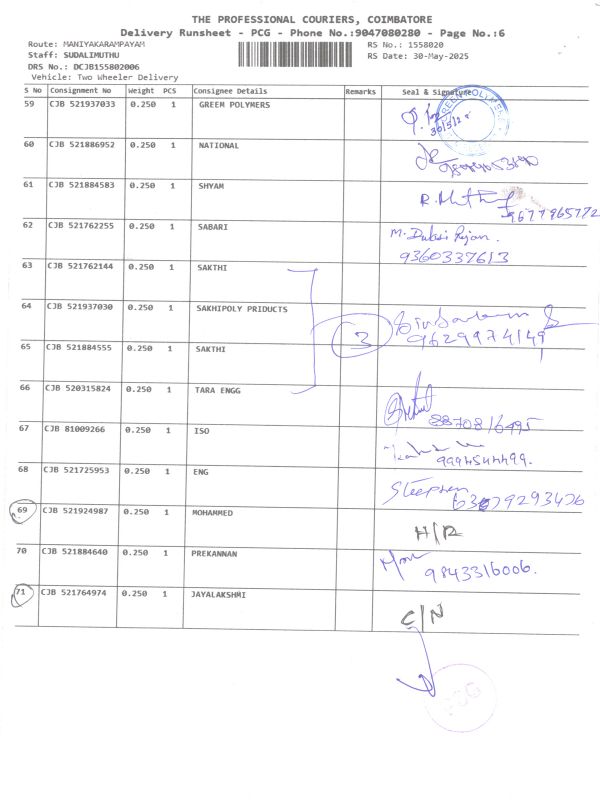 THE PROFESSIONAL COURIERS, COIMBATORE
Delivery Runsheet - PCG - Phone No.:9047080280 - Page No.:6
Route: MANIYAKARAMPAYAM RS No.: 1558020
Staff: SUDALIMUTHU RS Date: 30-May-2025
DRS No.: DCJB155802006
Vehicle: Two Wheeler Delivery
S No Consignment No Weight PCS Consignee Details Remarks Seal & Signature
59 CJB 521937033 0.250 1 GREEM POLYMERS
60 CJB 521886952 0.250 1 NATIONAL
61 CJB 521884583 0.250 1 SHYAM
9677965772
62 CJB 521762255 0.250 1 SABARI
9360337613
63 CJB 521762144 0.250 1 SAKTHI
64 CJB 521937030 0.250 1 SAKHIPOLY PRIDUCTS
3 9629974149
65 CJB 521884555 0.250 1 SAKTHI
66 CJB 520315824 0.250 1 TARA ENGG
8870816495
67 CJB 81009266 0.250 1 ISO
9994544499.
68 CJB 521725953 0.250 1 ENG
Steephen
69 CJB 521924987 0.250 1 MOHAMMED H/R
70 CJB 521884640 0.250 1 PREKANNAN
9843316006.
71 CJB 521764974 0.250 1 JAYALAKSHMI C/N
PCG